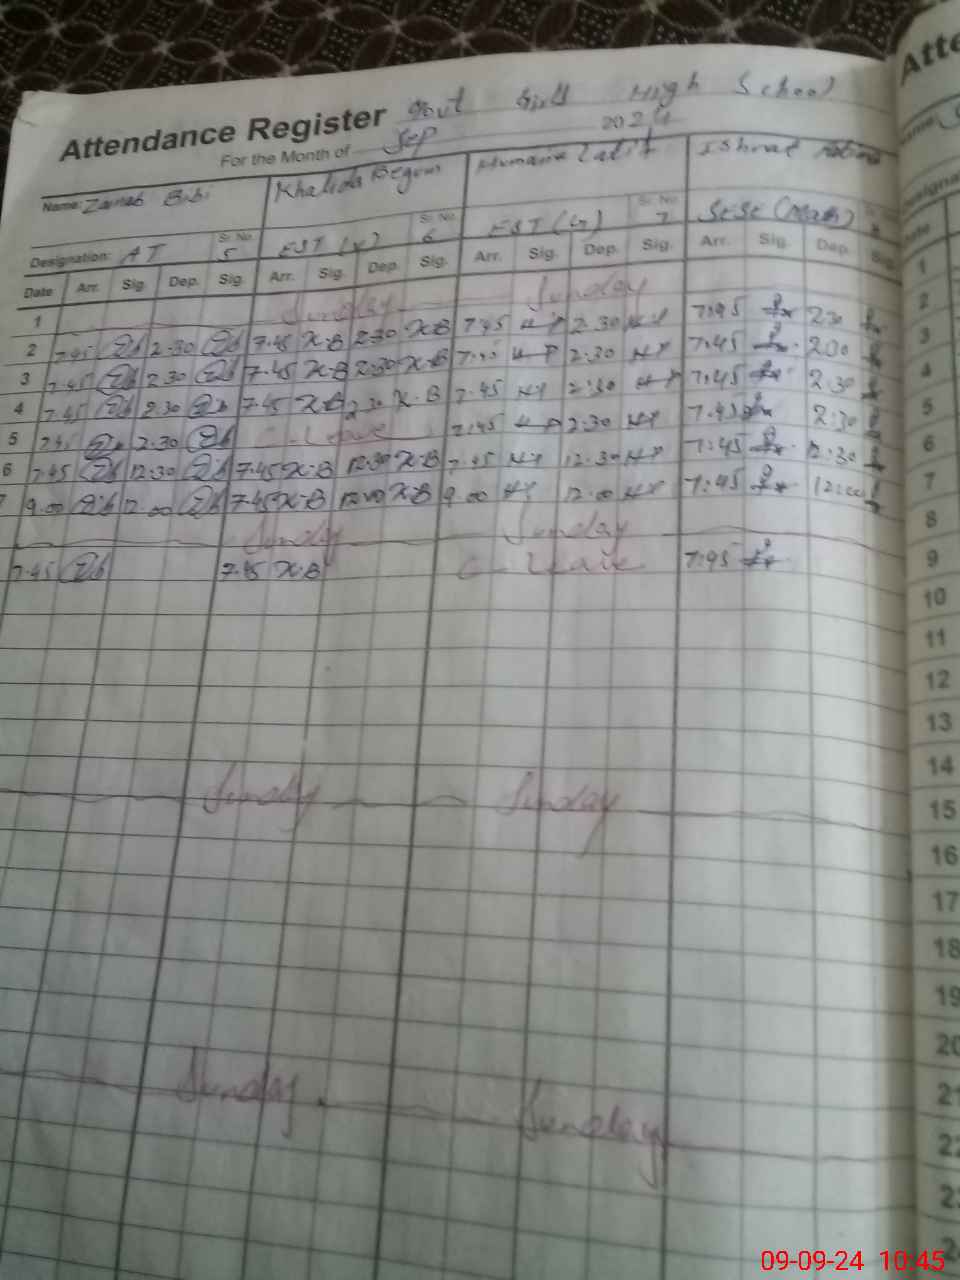 Atte
Attendance Register Govt Girls High School
For the Month of Sep 2024
Name: Zainab Bibi Khalida Begum Humaira Latif Ishrat
Designation: AT Sr. No. 5 EST ( ) Sr. No. 6 EST ( ) Sr. No. 7 SESE (Math)
Date Arr. Sig. Dep. Sig. Arr. Sig. Dep. Sig. Arr. Sig. Dep. Sig. Arr. Sig. Dep. Sig.
1 Sunday Sunday
2 7.45 2.30 7.45 K.B 2.30 K.B 7.45 2.30 7:45 2:30
3 7.45 2.30 7.45 K.B 2.30 K.B 7.45 2.30 7.45 2:00
4 7.45 2.30 7.45 K.B 2.30 K.B 7.45 2:30 7:45 2:30
5 7.45 2.30 C-Leave 7.45 2.30 7.45 2:30
6 7.45 12:30 7.45 K.B 12.30 K.B 7.45 12.30 7:45 12:30
7 9.00 12.00 7.45 K.B 12.00 K.B 9.00 12.00 7:45 12:00
Sunday Sunday
7.45 7.45 K.B C-Leave 7:45
Sunday Sunday
Sunday Sunday
1
2
3
4
5
6
7
8
9
10
11
12
13
14
15
16
17
18
19
20
21
22
09-09-24 10:45